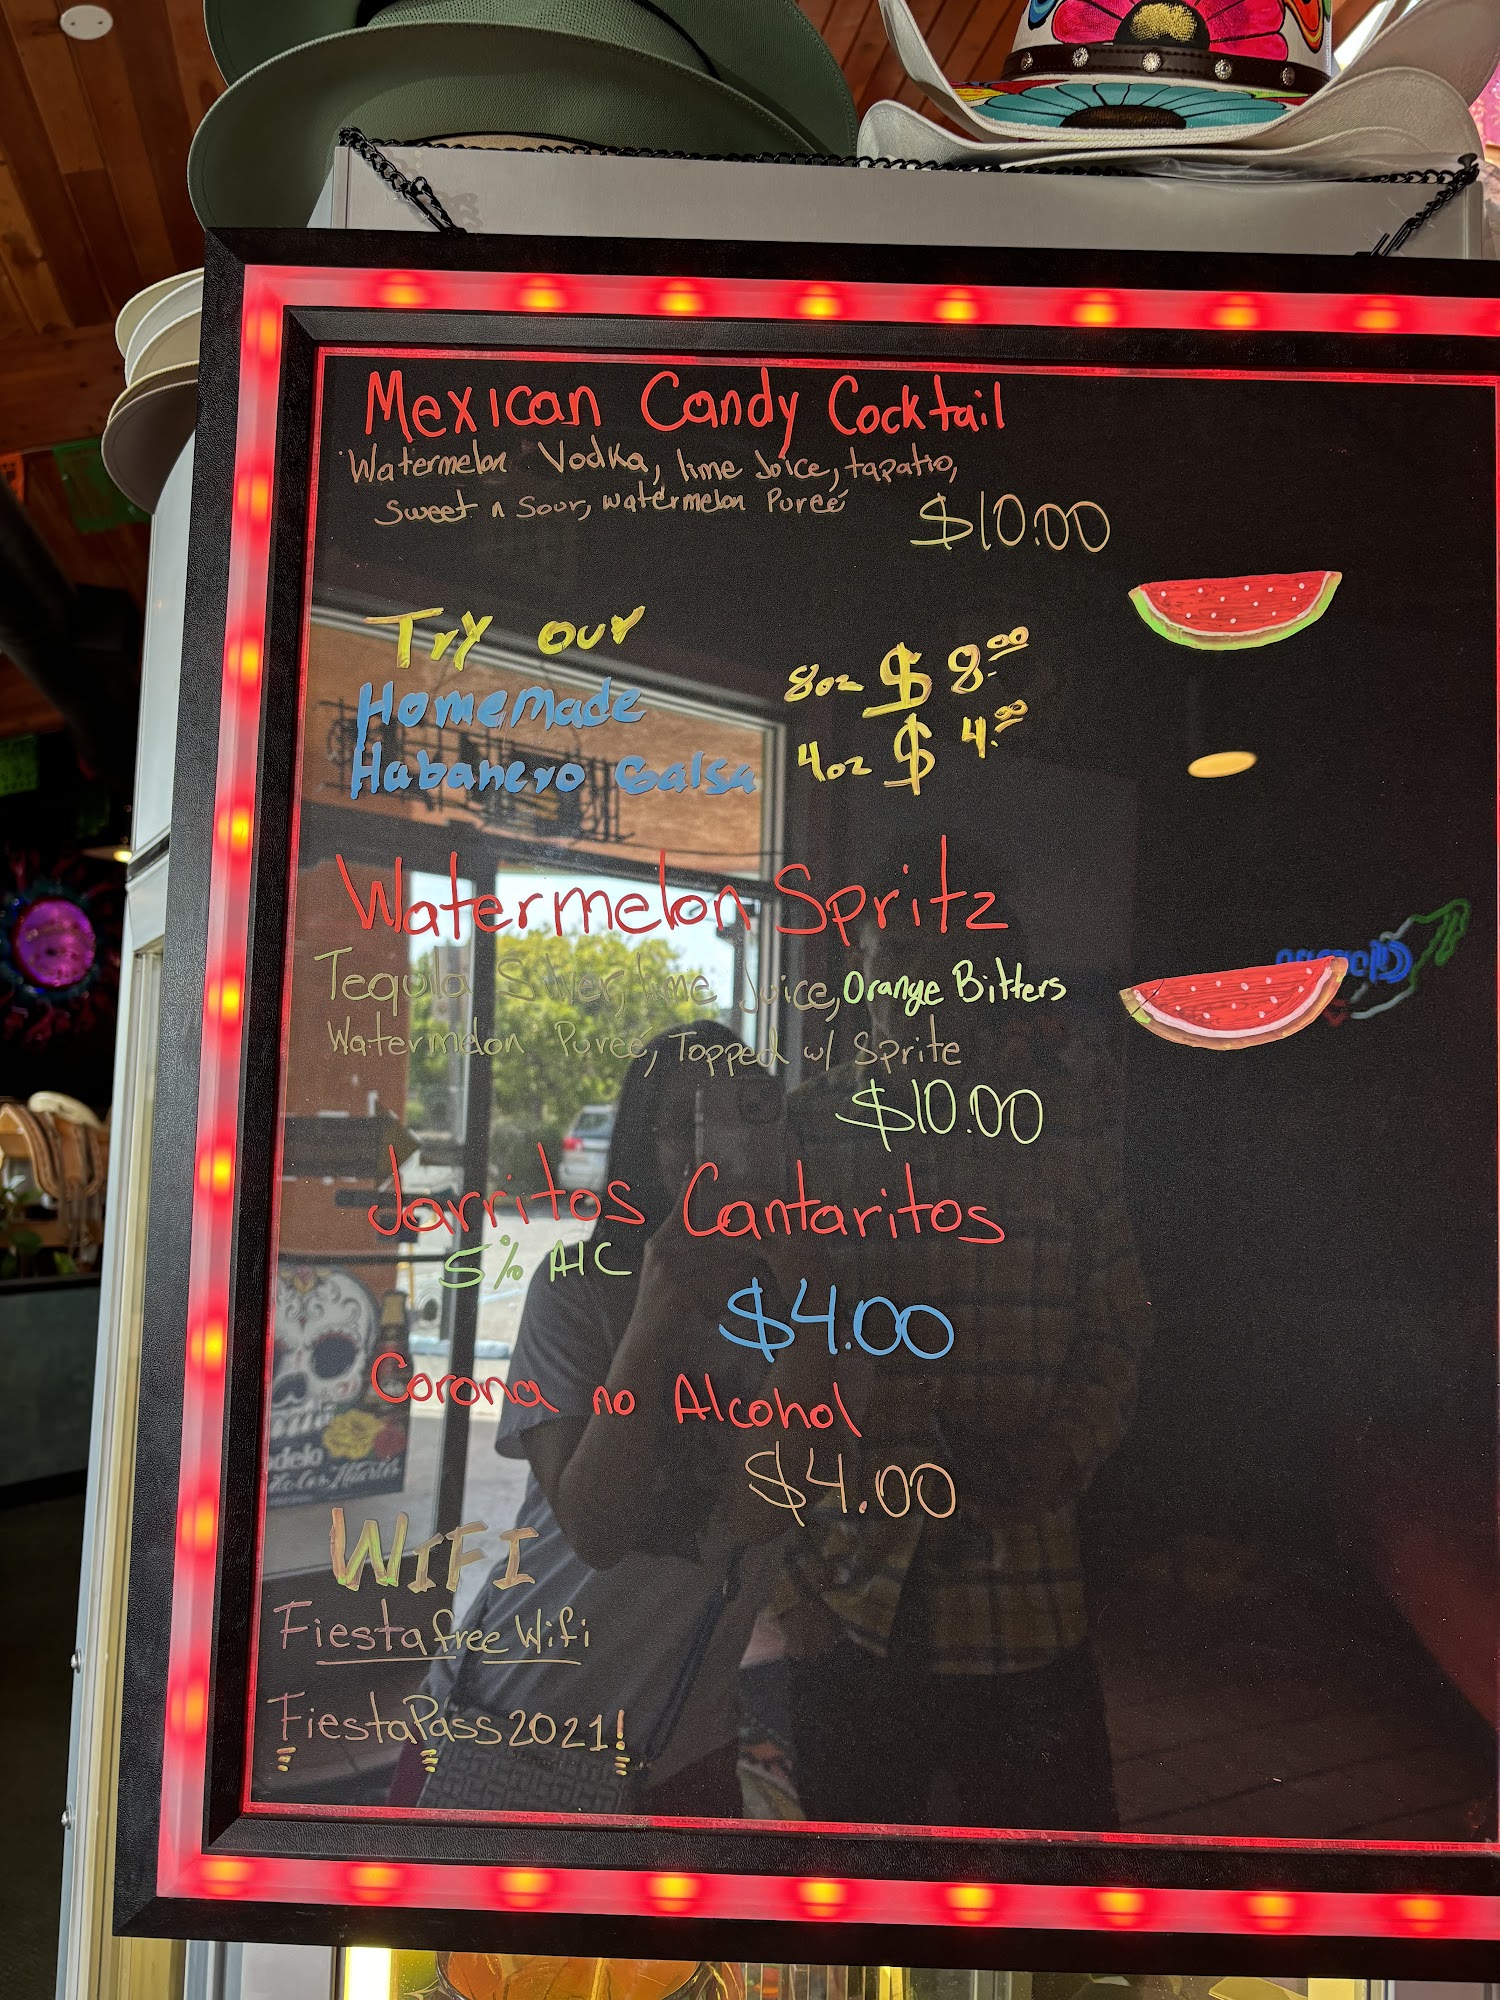 Mexican Candy Cocktail
Watermelon Vodka, lime Juice, tapatio,
Sweet n Sour, watermelon Pureé
$10.00
Try our
Homemade
Habanero Salsa
8oz $ 8.00
4oz $ 4.00
Watermelon Spritz
Tequila Silver, lime Juice, Orange Bitters
Watermelon Pureé, Topped w/ Sprite
$10.00
Jarritos Cantaritos
5% AlC
$4.00
Corona no Alcohol
$4.00
WIFI
Fiestafree Wifi
FiestaPass2021!